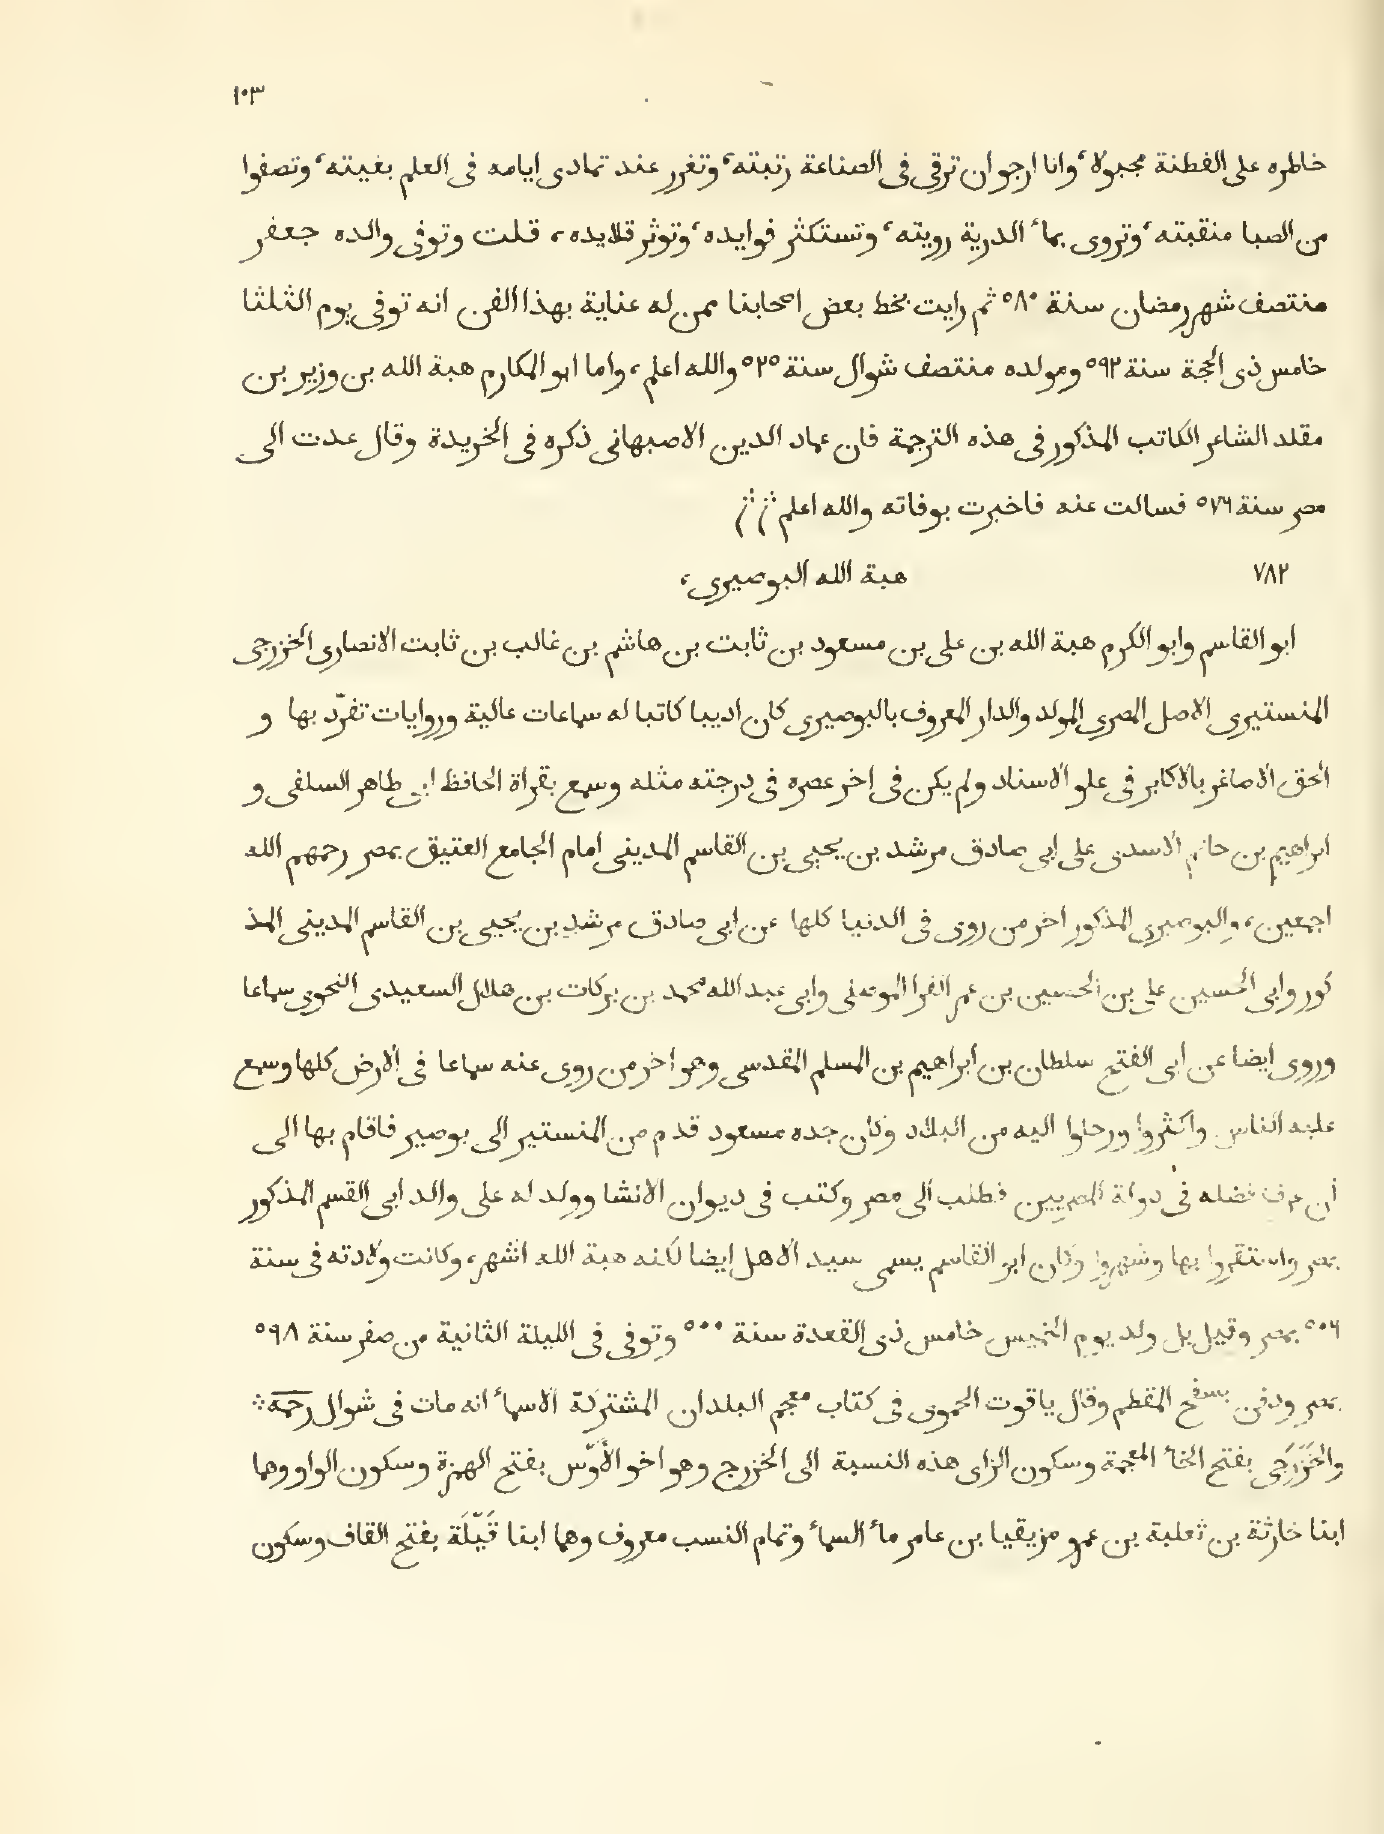 ١٠٣
خاطره على الفطنة مجبولا، وانا ارجو ان ترقى فى الصناعة رتبته، وتغزر عند تمادى ايامه فى العلم بغيته، وتصفوا
من الصبا منقبته، وتروى بمأ الدرية رويته، وتستكثر فوايده، وتوثر قلايده، قلت وتوفى والده جعفر
منتصف شهر رمضان سنة ٥٨٠ ثم رايت بخط بعض اصحابنا ممن له عناية بهذا الفن انه توفى يوم الثلثا
خامس ذى الحجة سنة ٥٩٢ ومولده منتصف شوال سنة ٥٢٥ والله اعلم، واما ابو المكارم هبة الله بن وزير بن
مقلد الشاعر الكاتب المذكور فى هذه الترجمة فان عماد الدين الاصبهانى ذكره فى الخريدة وقال عدت الى
مصر سنة ٥٧٦ فسالت عنه فاخبرت بوفاته والله اعلم
٧٨٢ هبة الله البوصيرى،
ابو القاسم وابو الكرم هبة الله بن على بن مسعود بن ثابت بن هاشم بن غالب بن ثابت الانصارى الخزرجى
المنستيرى الاصل المصرى المولد والدار المعروف بالبوصيرى كان اديبا كاتبا له سماعات عالية وروايات تفرّد بها و
الحق الاصاغر بالاكابر فى علو الاسناد ولم يكن فى اخر عصره فى درجته مثله وسمع بقرأة الحافظ ابى طاهر السلفى و
ابراهيم بن حاتم الاسدى على ابى صادق مرشد بن يحيى بن القاسم المدينى امام الجامع العتيق بمصر رحمهم الله
اجمعين، والبوصيرى المذكور اخر من روى فى الدنيا كلها عن ابى صادق مرشد بن يحيى بن القاسم المدينى المذ
كور وابى الحسين على بن الحسين بن عمر الفرا الموصلى وابى عبد الله محمد بن بركات بن هلال السعيدى النحوى سماعا
وروى ايضا عن ابى الفتح سلطان بن ابراهيم بن المسلم المقدسى وهو اخر من روى عنه سماعا فى الارض كلها وسمع
عليه الناس واكثروا ورحلوا اليه من البلاد وكان جده مسعود قدم من المنستير الى بوصير فاقام بها الى
ان عرف فضله فى دولة المصريين فطلب الى مصر وكتب فى ديوان الانشا وولد له على والد ابى القسم المذكور
بمصر واستقروا بها وشهروا وكان ابو القاسم يسمى سيد الاهل ايضا لكنه هبة الله اشهر، وكانت ولادته فى سنة
٥٠٦ بمصر وقيل بل ولد يوم الخميس خامس ذى القعدة سنة ٥٠٠ وتوفى فى الليلة الثانية من صفر سنة ٥٩٨
بمصر ودفن بسفح المقطم وقال ياقوت الحموى فى كتاب معجم البلدان المشتركة الاسمأ انه مات فى شوال رحمه
والخَزرَجى بفتح الخأ المعجمة وسكون الزاى هذه النسبة الى الخزرج وهو اخو الأَوْس بفتح الهمزة وسكون الواو وهما
ابنا حارثة بن ثعلبة بن عمرو مزيقيا بن عامر مأ السمأ وتمام النسب معروف وهما ابنا قَيْلَة بفتح القاف وسكون